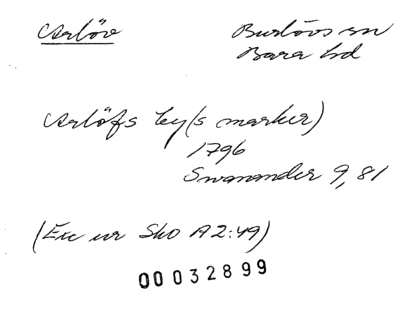 Arlöv
Burlövs sn
Bara hd
Arlöfs by(s marker)
1796
Swanander 9, 81
(Exc ur Sko A2:49)
00032899